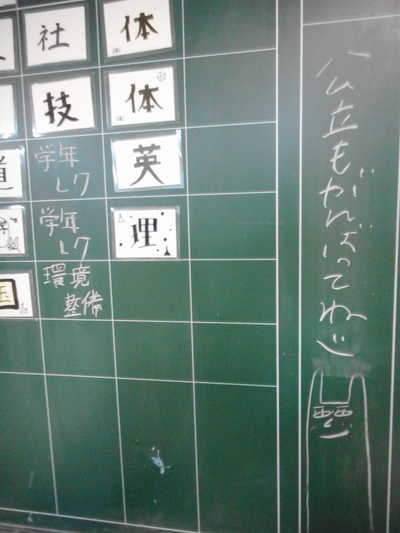 社
体
技
体
学年
レク
英
道
学年
レク
理
環境
整備
公立もがんばってね
西西